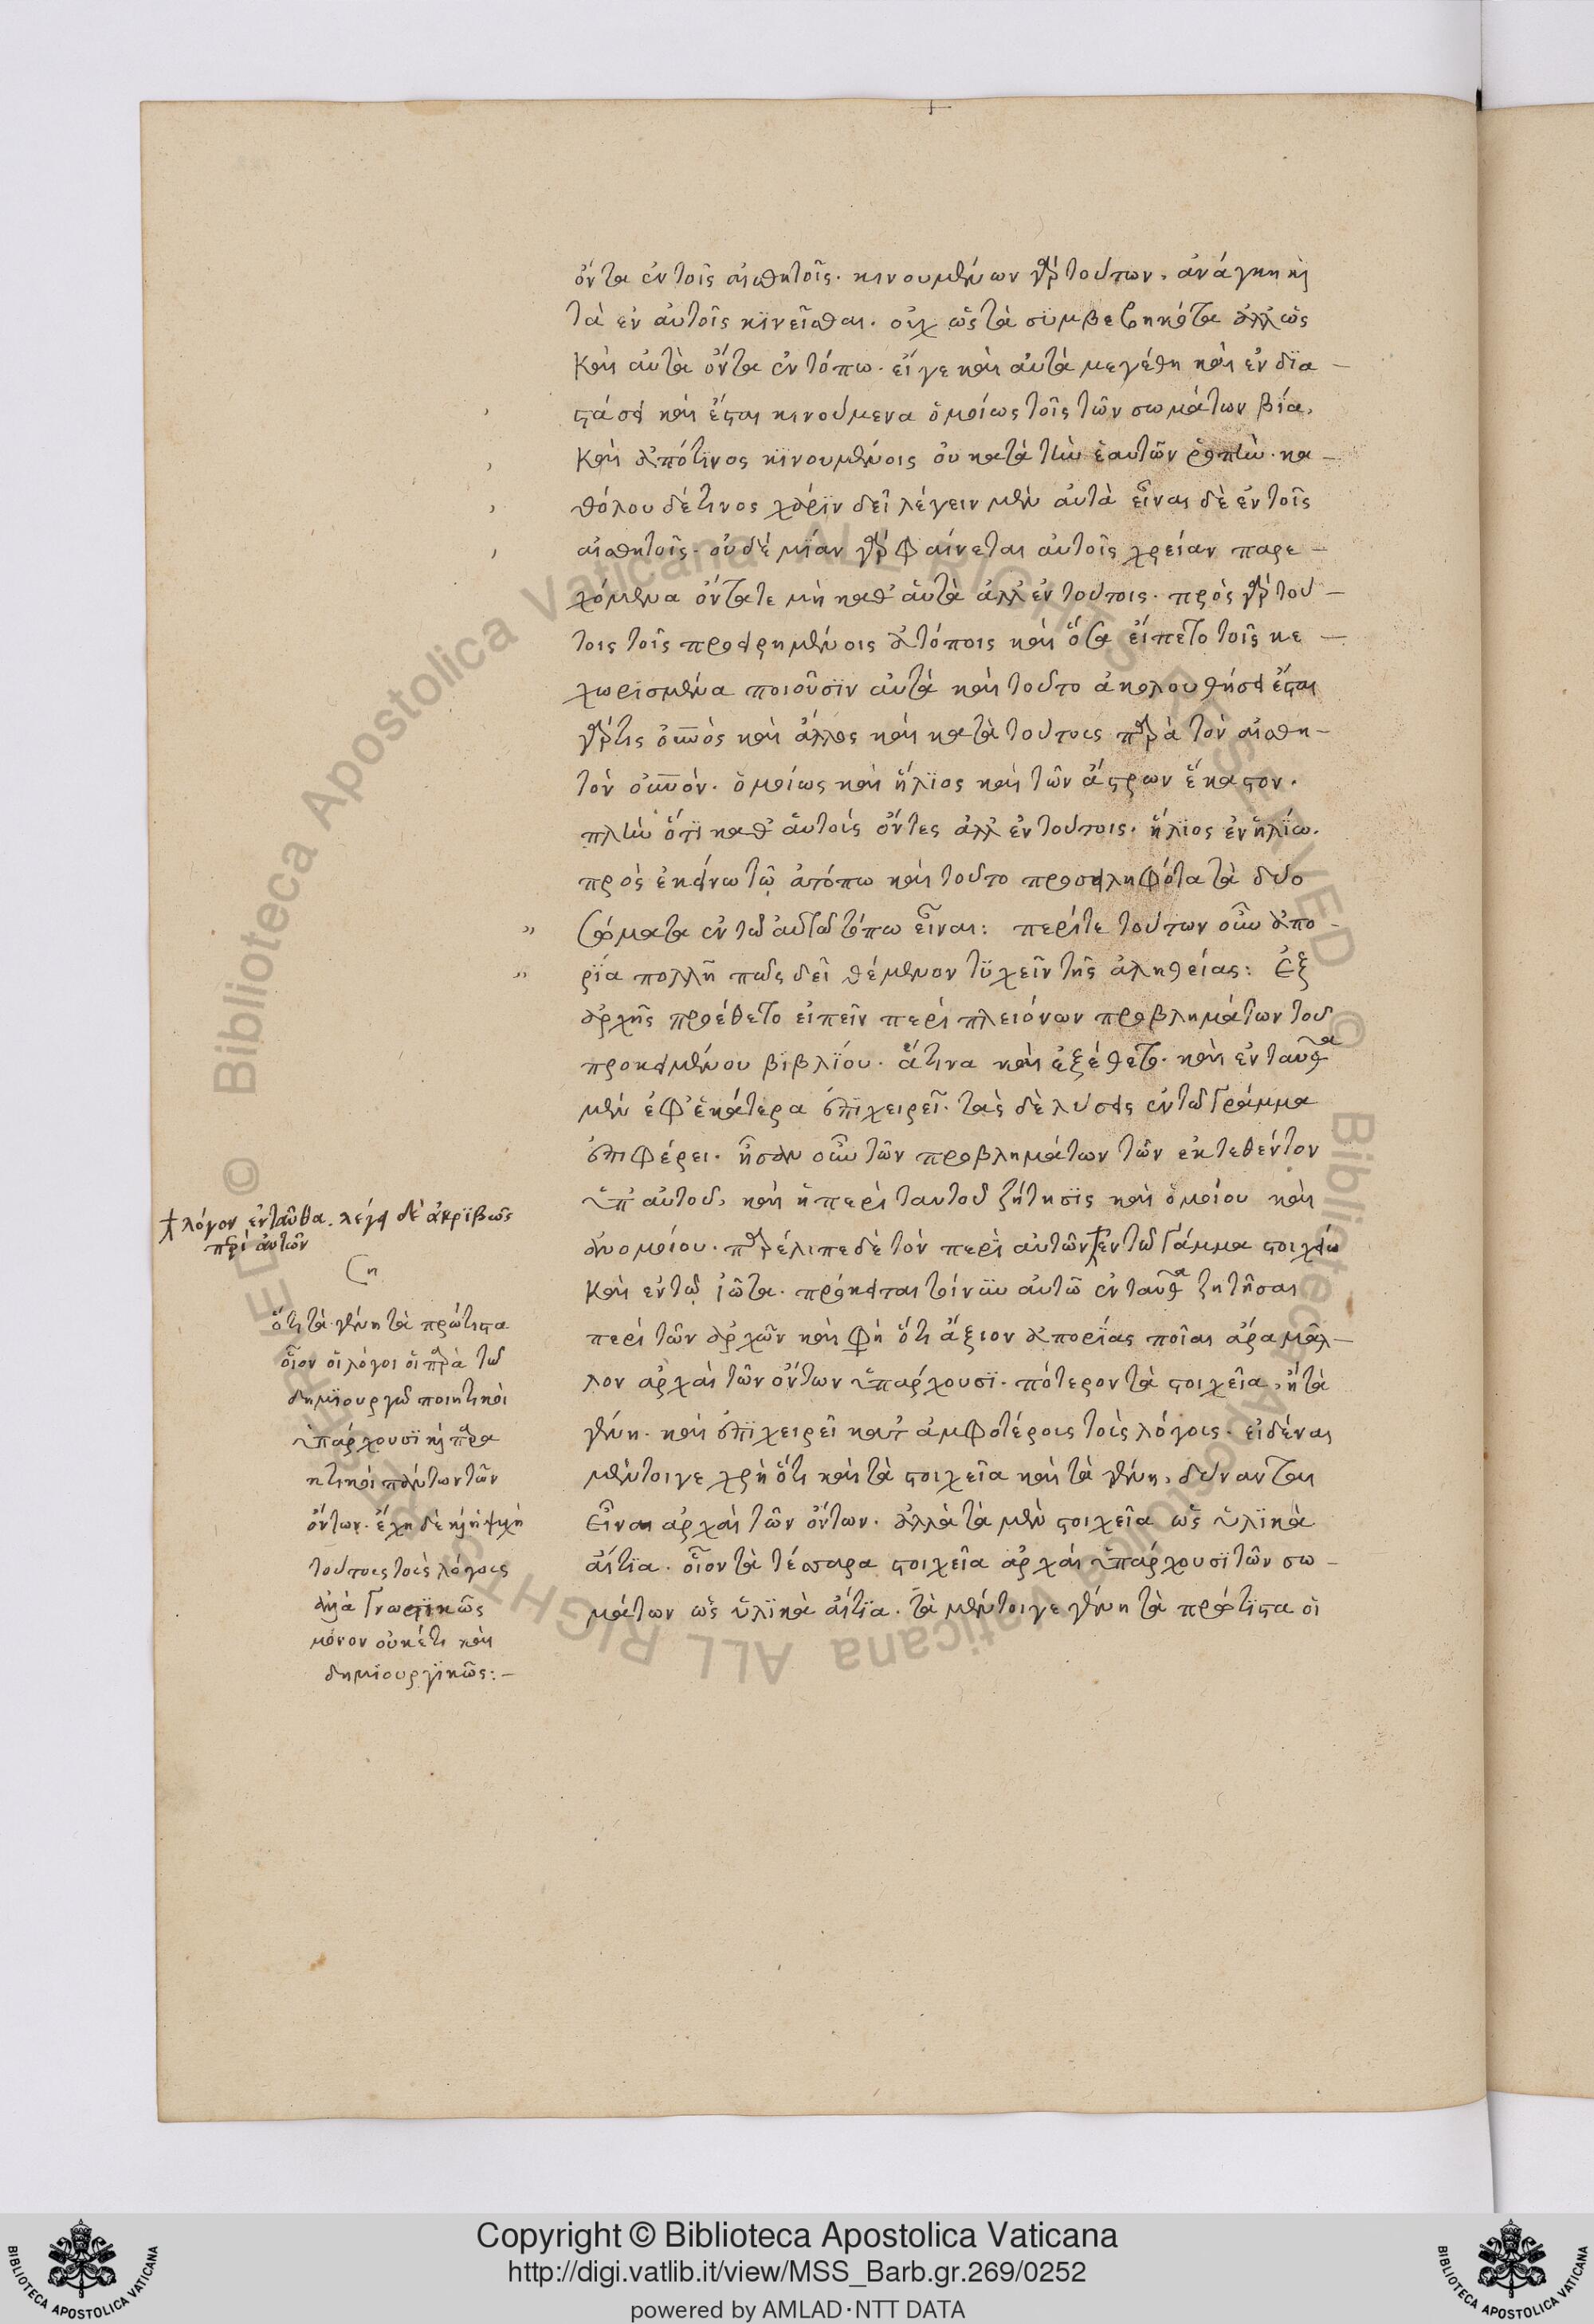 ὄντα ἐν τοῖς αἰσθητοῖς. κινουμένων γὰρ τούτων, ἀνάγκη καὶ
τὰ ἐν αὐτοῖς κϊνεῖσθαι. οὐχ ὡς τὰ σϋμβεβηκότα ἀλλ' ὡς
καὶ αὐτὰ ὄντα ἐν τόπω. εἴγε καὶ αὐτὰ μεγέθη καὶ ἐν δϊα –
στάσει καὶ ἔσται κινούμενα ὁμοίως τοῖς τῶν σωμάτων βία,
καὶ ἀπό τϊνος κϊνουμένοις οὐ κατὰ τὴν ἑαυτῶν ῥοπὴν. κα –
θόλου δέ τινος χάρϊν δεῖ λέγειν μὲν αὐτὰ εἶναι δὲ ἐν τοῖς
αἰσθητοῖς. οὐδέ μίαν γὰρ φαίνεται αὐτοῖς χρείαν παρε –
χόμενα ὄντα τε μὴ καθ' αὑτὰ ἀλλ' ἐν τούτοις. πρὸς γὰρ τού –
τοις τοῖς προειρημένοις ἀτόποις καὶ ὅσα εἵπετο τοῖς κε –
χωρϊσμένα ποιοῦσϊν αὐτὰ καὶ τοῦτο ἀκολουθήσει ἔσται
γάρ τις οὐνὸς καὶ ἄλλος καὶ κατὰ τούτους παρὰ τὸν αἰσθη –
τὸν οὐνόν. ὁμοίως καὶ ἥλϊος καὶ τῶν ἄστρων ἕκαστον.
πλὴν ὅτϊ καθ' αὑτοὺς ὄντες ἀλλ' ἐν τούτοις. ἥλϊος ἐν ἡλίω.
πρὸς ἐκείνω τῶ ἀτόπω καὶ τοῦτο προσειληφότα τὰ δύο
σώματα ἐν τῶ αὐτῶ τόπω εἶναι: περί τε τούτων οὖν ἀπο –
ρϊα πολλῆ πῶς δεῖ θέμενον τϋχεῖν τῆς ἀληθείας: Ἐξ
ἀρχῆς προέθετο εἰπεῖν περὶ πλειόνων προβλημάτων τοῦ
προκειμένου βϊβλϊου. ἅτινα καὶ ἐξέθετο. καὶ ἐνταῦθα
μὲν ἐφ' ἑκάτερα ἐπϊχειρεῖ. τὰς δὲ λύσεις ἐν τῶ Γράμμα
ἐπιφέρει. ἦσαν οὖν τῶν προβλημάτων τῶν ἐκτεθέντον
ὑπ' αὐτοῦ, καὶ ἡ περὶ ταυτοῦ ζήτησϊς καὶ ὁμοίου καὶ
ἀνομοίου. παρέλιπε δὲ τὸν περὶ αὐτῶν ἐν τῶ Γάμμα στοιχείω
καὶ ἐν τῶ ἰῶτα. πρόκειται τοίνϋν αὐτῶ ἐνταῦθα ζητῆσαι
περὶ τῶν ἀρχῶν καὶ φη ὅτι ἄξιον ἀπορϊας ποῖαι ἄρα μᾶλ –
λον ἀρχαὶ τῶν ὄντων ὑπάρχουσϊ. πότερον τὰ στοιχεῖα, ἢ τὰ
γένη. καὶ ἐπϊχειρεῖ κατ' ἀμφοτέρους τοὺς λόγους. εἰδέναι
μέντοιγε χρὴ ὅτι καὶ τὰ στοιχεῖα καὶ τὰ γένη, δύνανται
εἶναι ἀρχαὶ τῶν ὄντων. ἀλλὰ τὰ μὲν στοιχεῖα ὡς ὑλϊκὰ
αἴτϊα. οἷον τὰ τέσσαρα στοιχεῖα ἀρχαὶ ὑπάρχουσϊ τῶν σω –
μάτων ὡς ὑλϊκὰ αἴτϊα. τὰ μέντοιγε γένη τὰ πρώτϊστα οἱ
λόγον ἐνταῦθα. λέγει δὲ ἀκρϊβῶς
περὶ αὐτῶν
ση
ὅτι τὰ γένη τὰ πρώτιστα
οἷον οἱ λόγοι οἱ παρὰ τῶ
δημϊουργῶ ποιητικοὶ
ὑπάρχουσϊ καὶ παρα
κτικοὶ πάντων τῶν
ὄντων. ἔχη δὲ καὶ ἡ ψυχὴ
τούτους τοὺς λόγους
ἀλλὰ Γνωστϊκῶς
μόνον οὐκέτι καὶ
δημϊουργϊκῶς: –
Copyright © Biblioteca Apostolica Vaticana
http://digi.vatlib.it/view/MSS_Barb.gr.269/0252
powered by AMLAD·NTT DATA